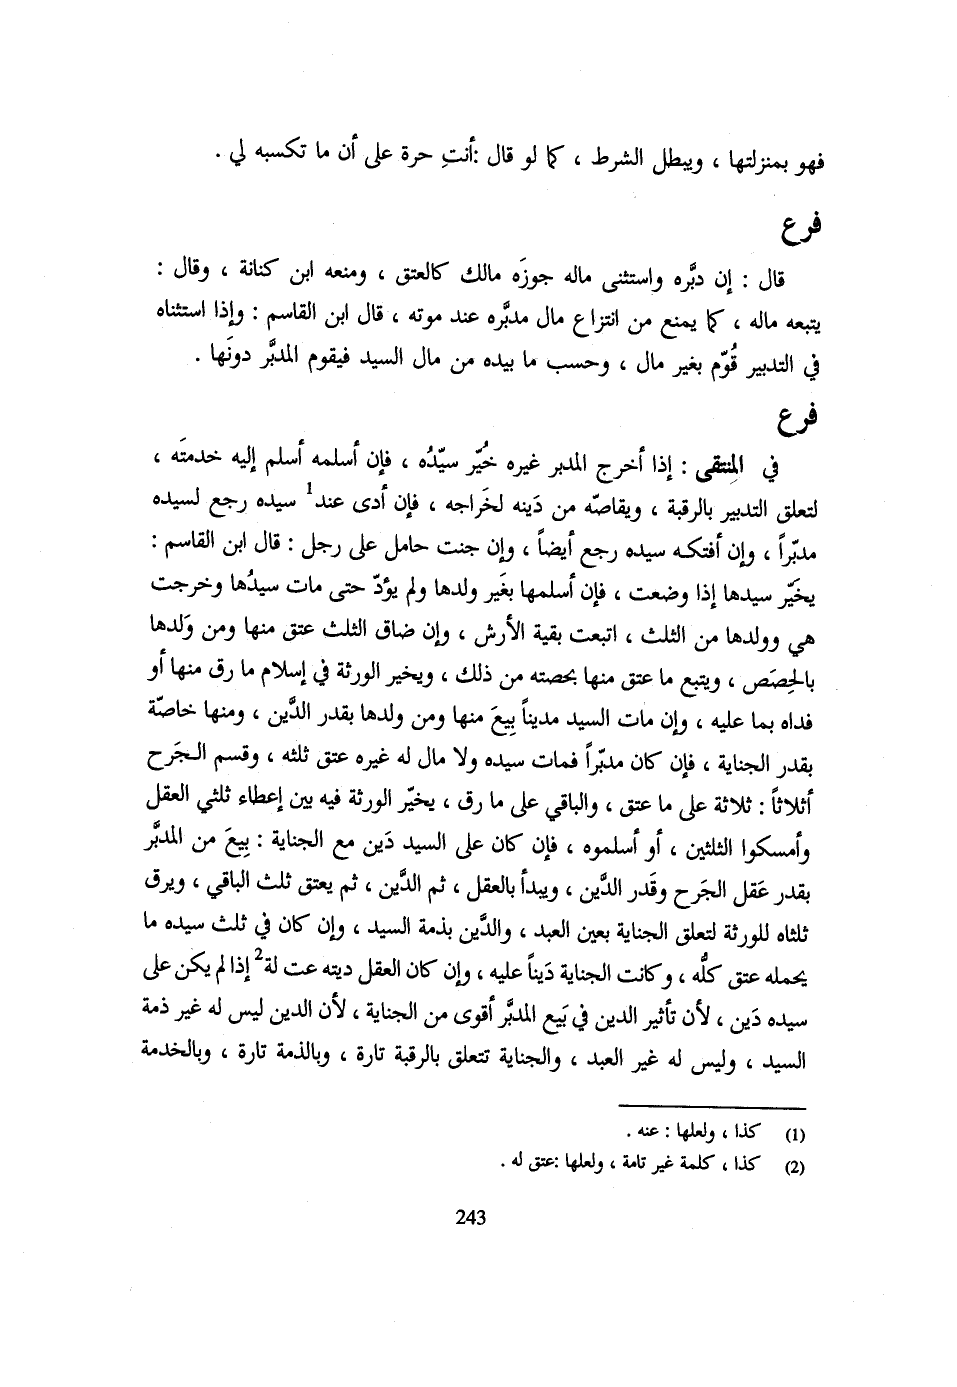 فهو بمنزلتها ، ويبطل الشرط ، كما لو قال :أنتِ حرة على أن ما تكسبه لي .
فرع
قال : إن دبَّره واستثنى ماله جوزَه مالك كالعتق ، ومنعه ابن كنانة ، وقال :
يتبعه ماله ، كما يمنع من انتزاع مال مدبَّره عند موته ، قال ابن القاسم : وإذا استثناه
في التدبير قُوّم بغير مال ، وحسب ما بيده من مال السيد فيقوم المدبَّر دونَها .
فرع
في المنتقى : إذا أخرج المدبر غيره خُيّر سيّدُه ، فإن أسلمه أسلم إليه خدمتَه ،
لتعلق التدبير بالرقبة ، ويقاصّه من دَينه لخَراجه ، فإن أدى عند1 سيده رجع لسيده
مدبّراً ، وإن أفتكه سيده رجع أيضاً ، وإن جنت حامل على رجل : قال ابن القاسم :
يخَيّر سيدها إذا وضعت ، فإن أسلمها بغَير ولدها ولم يؤدّ حتى مات سيدُها وخرجت
هي وولدها من الثلث ، اتبعت بقية الأرش ، وإن ضاق الثلث عتق منها ومن وَلدها
بالحِصَص ، ويتبع ما عتق منها بحصته من ذلك ، ويخير الورثة في إسلام ما رق منها أو
فداه بما عليه ، وإن مات السيد مديناً بِيعَ منها ومن ولدها بقدر الدَّين ، ومنها خاصّة
بقدر الجناية ، فإن كان مدبّراً فمات سيده ولا مال له غيره عتق ثلثه ، وقسم الجَرح
أثلاثاً : ثلاثة على ما عتق ، والباقي على ما رق ، يخيّر الورثة فيه بين إعطاء ثلثي العقل
وأمسكوا الثلثين ، أو أسلموه ، فإن كان على السيد دَين مع الجناية : بِيعَ من المدبَّر
بقدر عَقل الجَرح وقَدر الدَّين ، ويبدأ بالعقل ، ثم الدَّين ، ثم يعتق ثلث الباقي ، ويرق
ثلثاه للورثة لتعلق الجناية بعين العبد ، والدَّين بذمة السيد ، وإن كان في ثلث سيده ما
يحمله عتق كلُّه ، وكانت الجناية دَيناً عليه ، وإن كان العقل ديته عت لة2 إذا لم يكن على
سيده دَين ، لأن تأثير الدين في بَيع المدبَّر أقوى من الجناية ، لأن الدين ليس له غير ذمة
السيد ، وليس له غير العبد ، والجناية تتعلق بالرقبة تارة ، وبالذمة تارة ، وبالخدمة
(1) كذا ، ولعلها : عنه .
(2) كذا ، كلمة غير تامة ، ولعلها :عتق له .
243